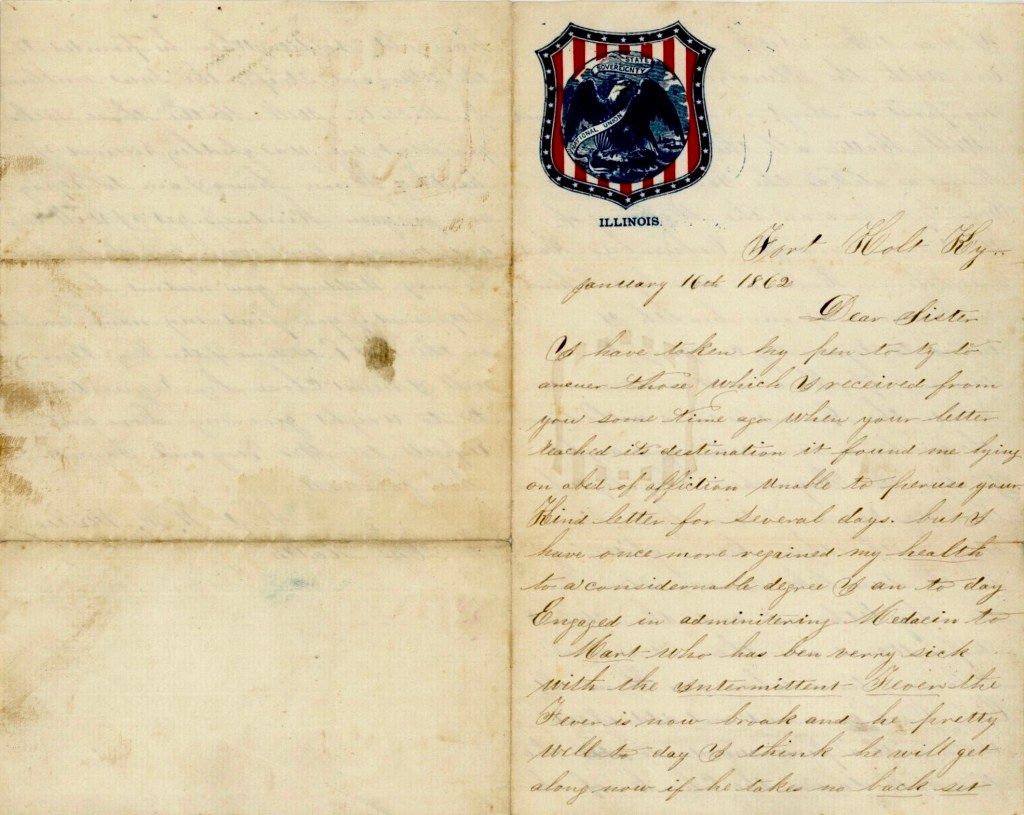 STATE
SOVEREIGNTY
NATIONAL UNION
ILLINOIS.
Fort Holt Ky.
January 16th 1862
Dear Sister
I have taken my pen to ty to
answer those which I received from
you some time ago when your letter
reached its destination it found me lying
on abed of affliction unable to peruse your
Kind letter for several days. but I
have once more regained my health
to a considernable degree I an to day
Engaged in adminitering Medacin to
Mart who has ben verry sick
with the intermittent Fever the
Fever is now broak and he pretty
well to day I think he will get
along now if he takes no back set